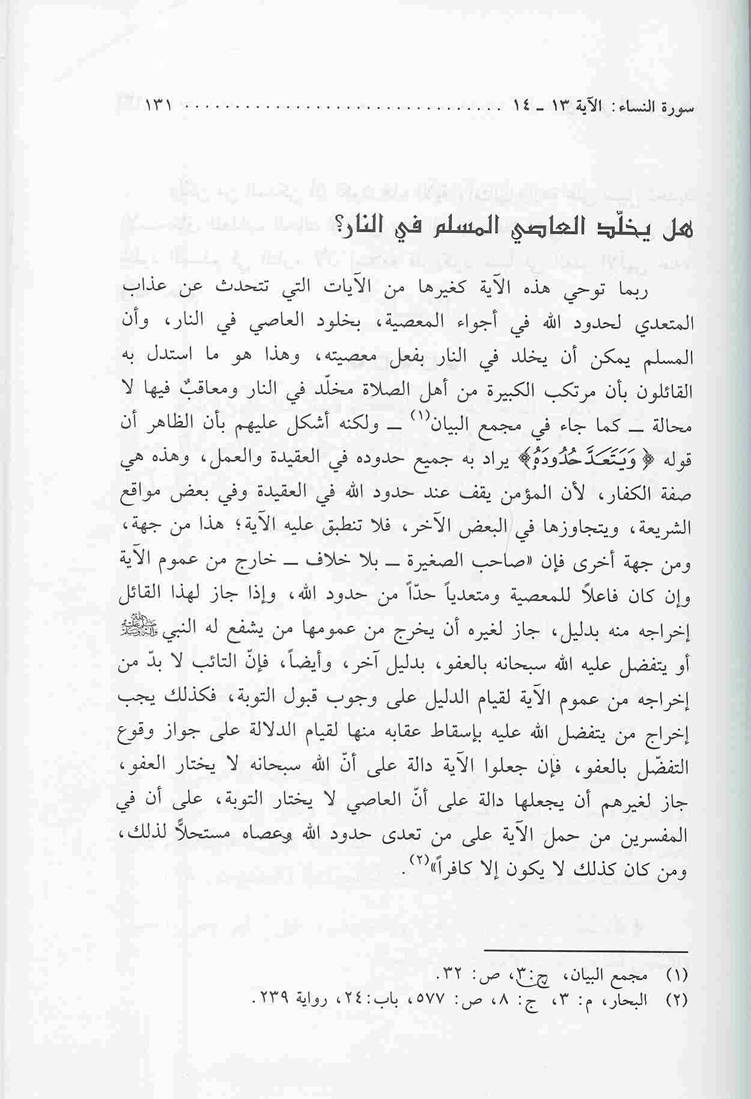 سورة النساء: الآية ١٣ ـ ١٤ ................................ ١٣١
هل يخلّد العاصي المسلم في النار؟
ربما توحي هذه الآية كغيرها من الآيات التي تتحدث عن عذاب
المتعدي لحدود الله في أجواء المعصية، بخلود العاصي في النار، وأن
المسلم يمكن أن يخلد في النار بفعل معصيته، وهذا هو ما استدل به
القائلون بأن مرتكب الكبيرة من أهل الصلاة مخلّد في النار ومعاقبٌ فيها لا
محالة ـ كما جاء في مجمع البيان(١) ـ ولكنه أشكل عليهم بأن الظاهر أن
قوله ﴿وَيَتَعَدَّ حُدُودَهُ﴾ يراد به جميع حدوده في العقيدة والعمل، وهذه هي
صفة الكفار، لأن المؤمن يقف عند حدود الله في العقيدة وفي بعض مواقع
الشريعة، ويتجاوزها في البعض الآخر، فلا تنطبق عليه الآية؛ هذا من جهة،
ومن جهة أخرى فإن «صاحب الصغيرة ـ بلا خلاف ـ خارج من عموم الآية
وإن كان فاعلاً للمعصية ومتعدياً حدّاً من حدود الله، وإذا جاز لهذا القائل
إخراجه منه بدليل، جاز لغيره أن يخرج من عمومها من يشفع له النبي ﷺ
أو يتفضل عليه الله سبحانه بالعفو، بدليل آخر، وأيضاً، فإنّ التائب لا بدّ من
إخراجه من عموم الآية لقيام الدليل على وجوب قبول التوبة، فكذلك يجب
إخراج من يتفضل الله عليه بإسقاط عقابه منها لقيام الدلالة على جواز وقوع
التفضّل بالعفو، فإن جعلوا الآية دالة على أنّ الله سبحانه لا يختار العفو،
جاز لغيرهم أن يجعلها دالة على أنّ العاصي لا يختار التوبة، على أن في
المفسرين من حمل الآية على من تعدى حدود الله وعصاه مستحلاً لذلك،
ومن كان كذلك لا يكون إلا كافراً»(٢).
(١) مجمع البيان، ج:٣، ص: ٣٢.
(٢) البحار، م: ٣، ج: ٨، ص: ٥٧٧، باب:٢٤، رواية ٢٣٩.